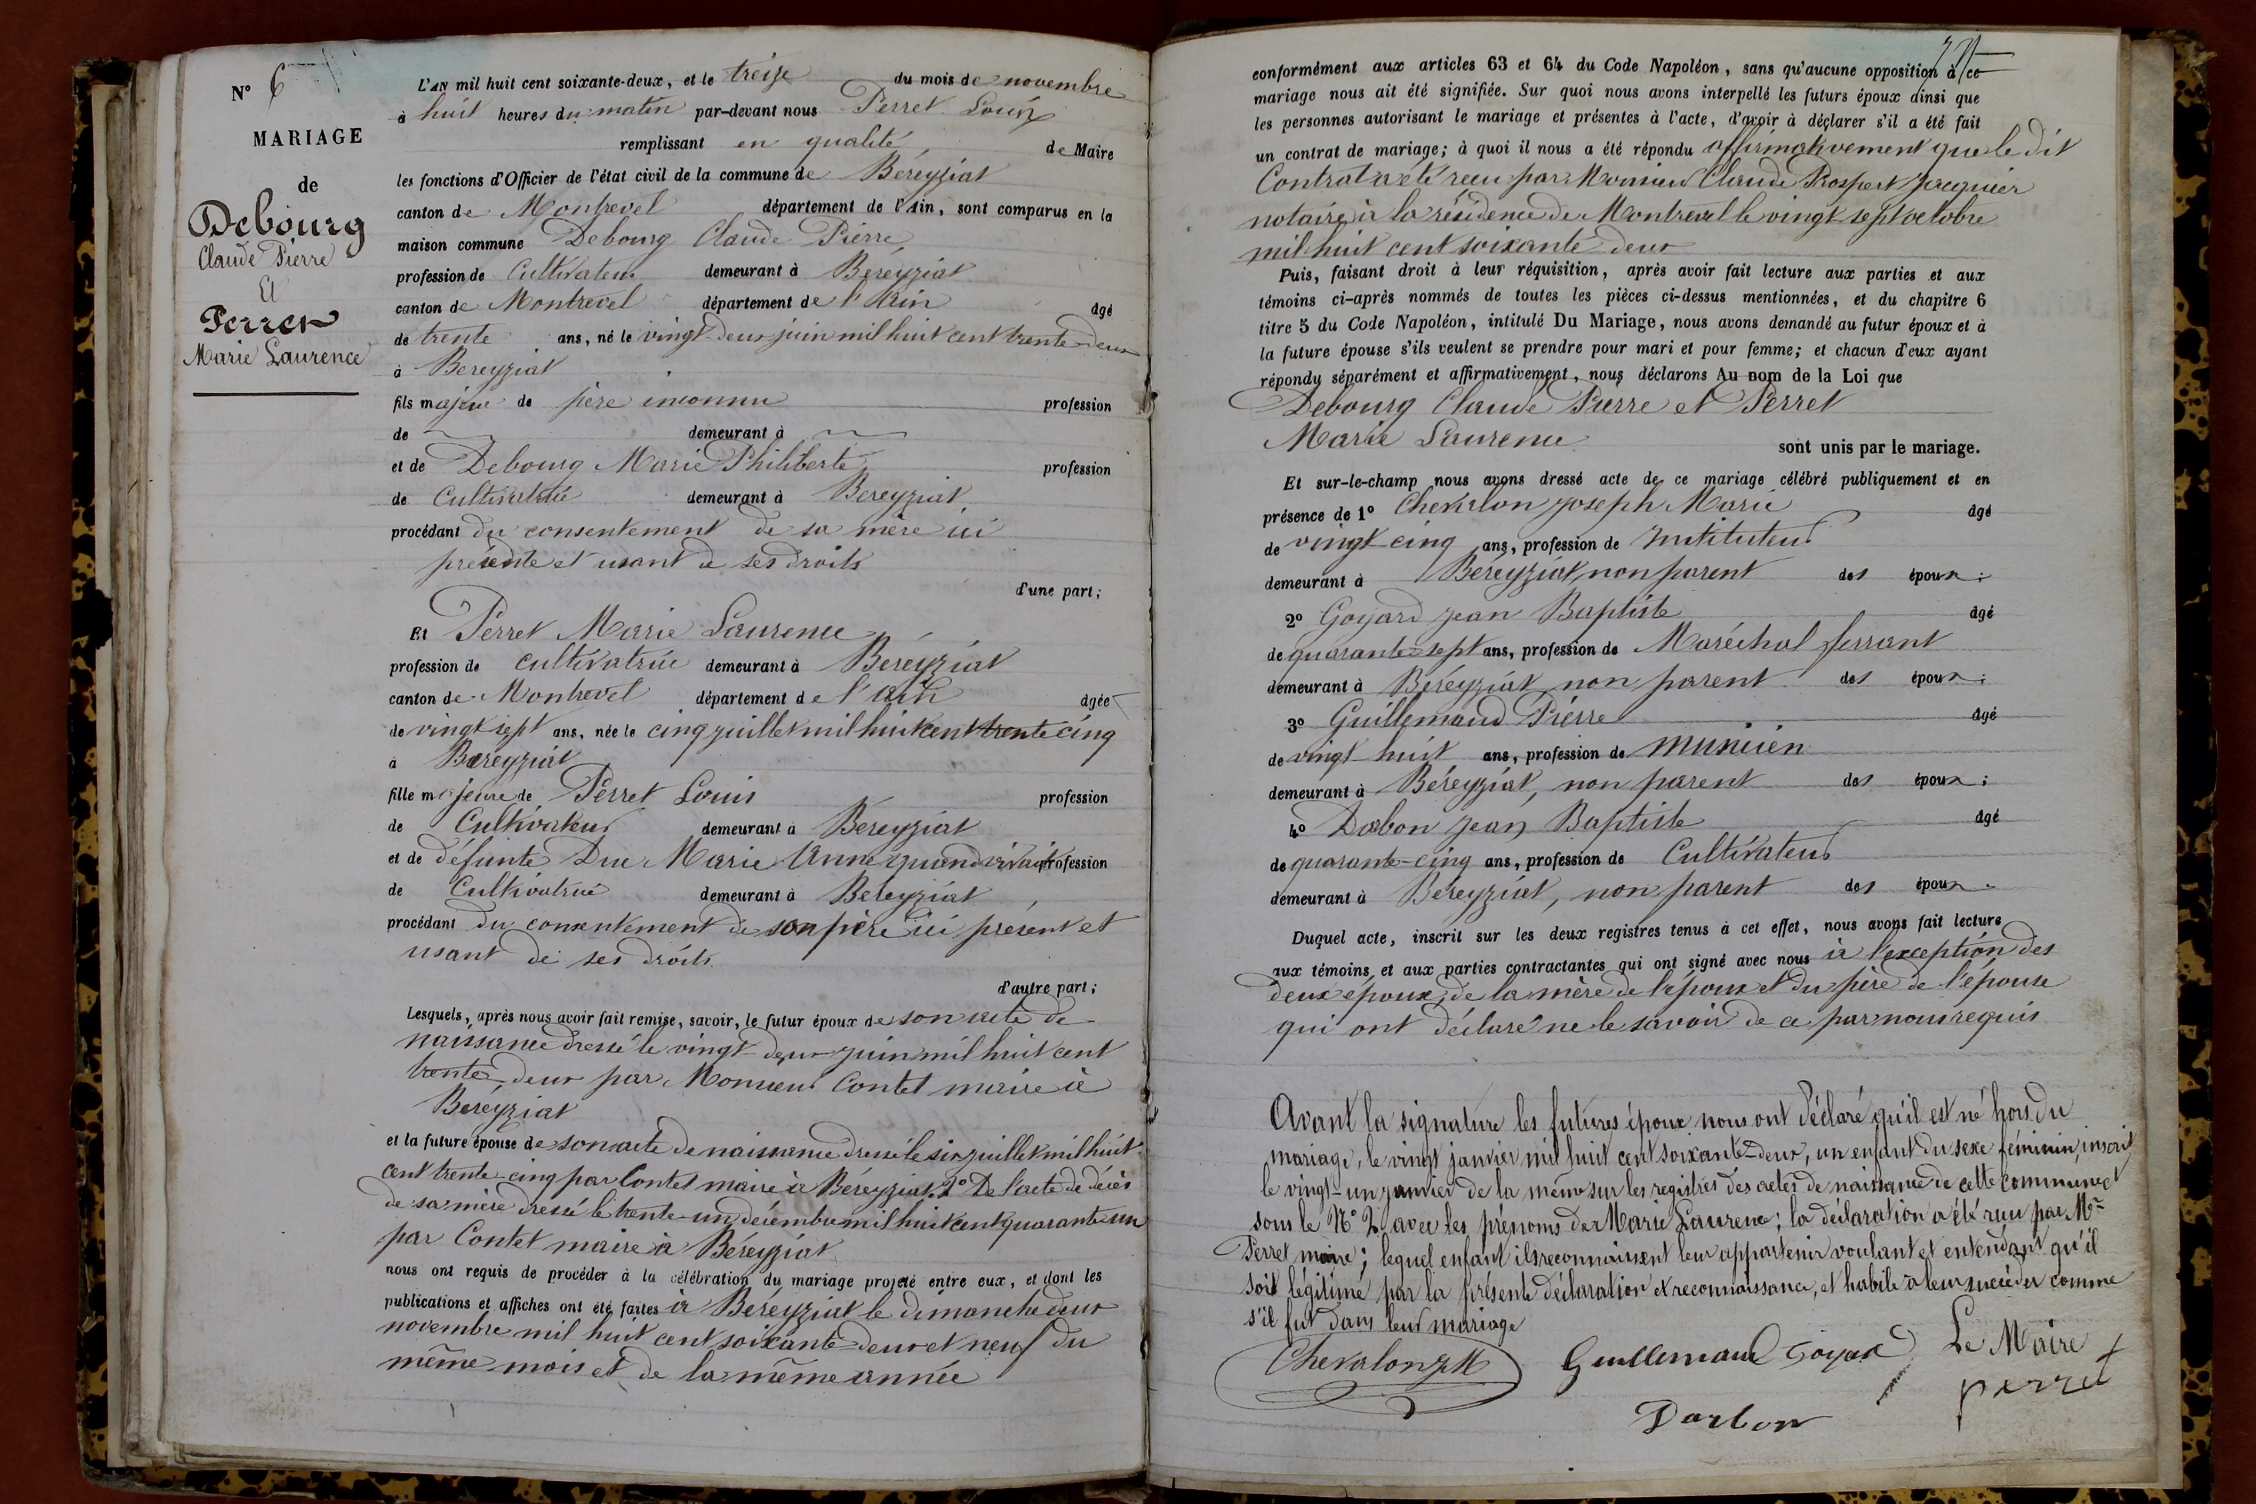 N° 6
MARIAGE
de
Debourg
Claude Pierre
Et
Perret
Marie Laurence
L'AN mil huit cent soixante-deux, et le treize du mois de novembre
à huit heures du matin par-devant nous Perret Louis
remplissant en qualité de Maire
les fonctions d'Officier de l'état civil de la commune de Béréyziat
canton de Montrevel département de l'Ain, sont comparus en la
maison commune Debourg Claude Pierre
profession de Cultivateur demeurant à Béréyziat
canton de Montrevel département de l'Ain âgé
de trente ans, né le vingt-deux juin mil huit cent trente-deux
à Béreyziat
fils majeur de père inconnu profession
de demeurant à
et de Debourg Marie Philiberte profession
de Cultivatrice demeurant à Béreyziat
procédant du consentement de sa mère ici
présente et usant de ses droits
d'une part;
Et Perret Marie Laurence
profession de cultivatrice demeurant à Béreyziat
canton de Montrevel département de l'Ain âgée
de vingt sept ans, née le cinq juillet mil huit cent trente cinq
à Béreyziat
fille majeure de Perret Louis profession
de Cultivateur demeurant à Béreyziat
et de défunte Duc Marie Anne quand vivait profession
de Cultivatrice demeurant à Béreyziat
procédant du consentement de son père ici présent et
usant de ses droits
d'autre part;
Lesquels, après nous avoir fait remise, savoir, le futur époux de son acte de
naissance dressé le vingt-deux juin mil huit cent
trente-deux par Monsieur Contet maire à
Béréyziat
et la future épouse de son acte de naissance dressé le six juillet mil huit
cent trente-cinq par Contet maire à Béréyziat 2° De l'acte de décès
de sa mère dressé le trente-un décembre mil huit cent quarante-un
par Contet maire à Béréyziat
nous ont requis de procéder à la célébration du mariage projeté entre eux, et dont les
publications et affiches ont été faites à Béréyziat le dimanche deux
novembre mil huit cent soixante-deux et neuf du
même mois et de la même année
conformément aux articles 63 et 64 du Code Napoléon, sans qu'aucune opposition à ce
mariage nous ait été signifiée. Sur quoi nous avons interpellé les futurs époux ainsi que
les personnes autorisant le mariage et présentes à l'acte, d'avoir à déclarer s'il a été fait
un contrat de mariage; à quoi il nous a été répondu affirmativement que le dit
Contrat a été reçu par Monsieur Claude Prospert
notaire à la résidence de Montrevel le vingt-sept octobre
mil huit cent soixante deux
Puis, faisant droit à leur réquisition, après avoir fait lecture aux parties et aux
témoins ci-après nommés de toutes les pièces ci-dessus mentionnées, et du chapitre 6
titre 5 du Code Napoléon, intitulé Du Mariage, nous avons demandé au futur époux et à
la future épouse s'ils veulent se prendre pour mari et pour femme; et chacun d'eux ayant
répondu séparément et affirmativement, nous déclarons Au nom de la Loi que
Debourg Claude Pierre et Perret
Marie Laurence sont unis par le mariage.
Et sur-le-champ nous avons dressé acte de ce mariage célébré publiquement et en
présence de 1° Chevalon Joseph Marie âgé
de vingt-cinq ans, profession de Instituteur
demeurant à Béréyziat, non parent des époux;
2° Goyard Jean Baptiste âgé
de quarante-sept ans, profession de Maréchal ferrant
demeurant à Béréyziat non parent des époux;
3° Guillemaud Pierre âgé
de vingt-huit ans, profession de musicien
demeurant à Béréyziat, non parent des époux;
4° Darbon Jean Baptiste âgé
de quarante-cinq ans, profession de Cultivateur
demeurant à Béréyziat, non parent des époux.
Duquel acte, inscrit sur les deux registres tenus à cet effet, nous avons fait lecture
aux témoins et aux parties contractantes qui ont signé avec nous à l'exception des
deux époux, de la mère de l'époux et du père de l'épouse
qui ont déclaré ne le savoir de ce par nous requis
Avant la signature les futures époux nous ont déclaré qu'il est né hors du
mariage, le vingt janvier mil huit cent soixante-deux, un enfant du sexe féminin, inscrit
le vingt-un janvier de la même sur les registres des actes de naissance de cette commune et
sous le N° 2, avec les prénoms de Marie Laurence; la déclaration a été reçu par Mr
Perret maire; lequel enfant ils reconnaissent leur appartenir voulant et entendant qu'il
soit légitimé par la présente déclaration et reconnaissance, et habile à leur succéder comme
s'il fut dans leur mariage
Chevalon JM Guillemaud Goyard Le Maire
Perret
Darbon